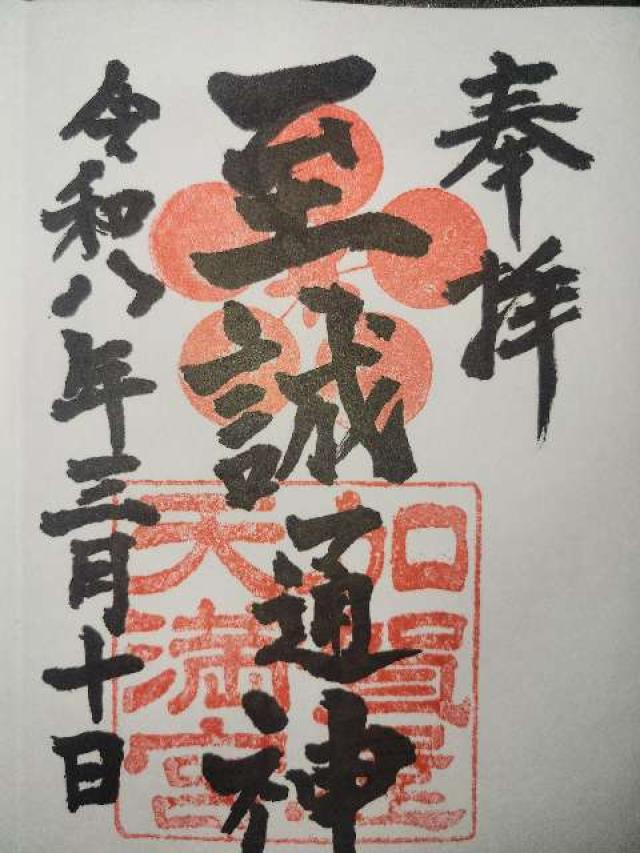 奉拝
至誠通神
加賀屋
天満宮
令和八年三月十日